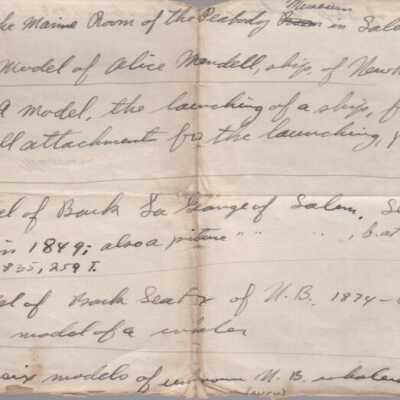 Museum
the Marine Room of the Peabody Room in Sale
Model of Alice Mandell, ship, of New
A model, the launching of a ship, f
ll attachment for the launching,
el of Bark La Grange of Salem, S
in 1849; also a picture " " , b. at
835, 259 T.
el of Bark Sea Fox of N.B. 1874-
model of a whaler
six models of unknown N.B. whalers